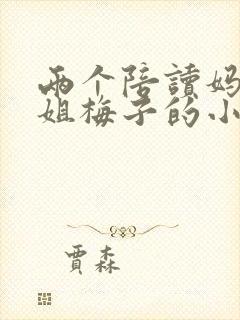 两个陪讀妈
姐梅子的小
賈森